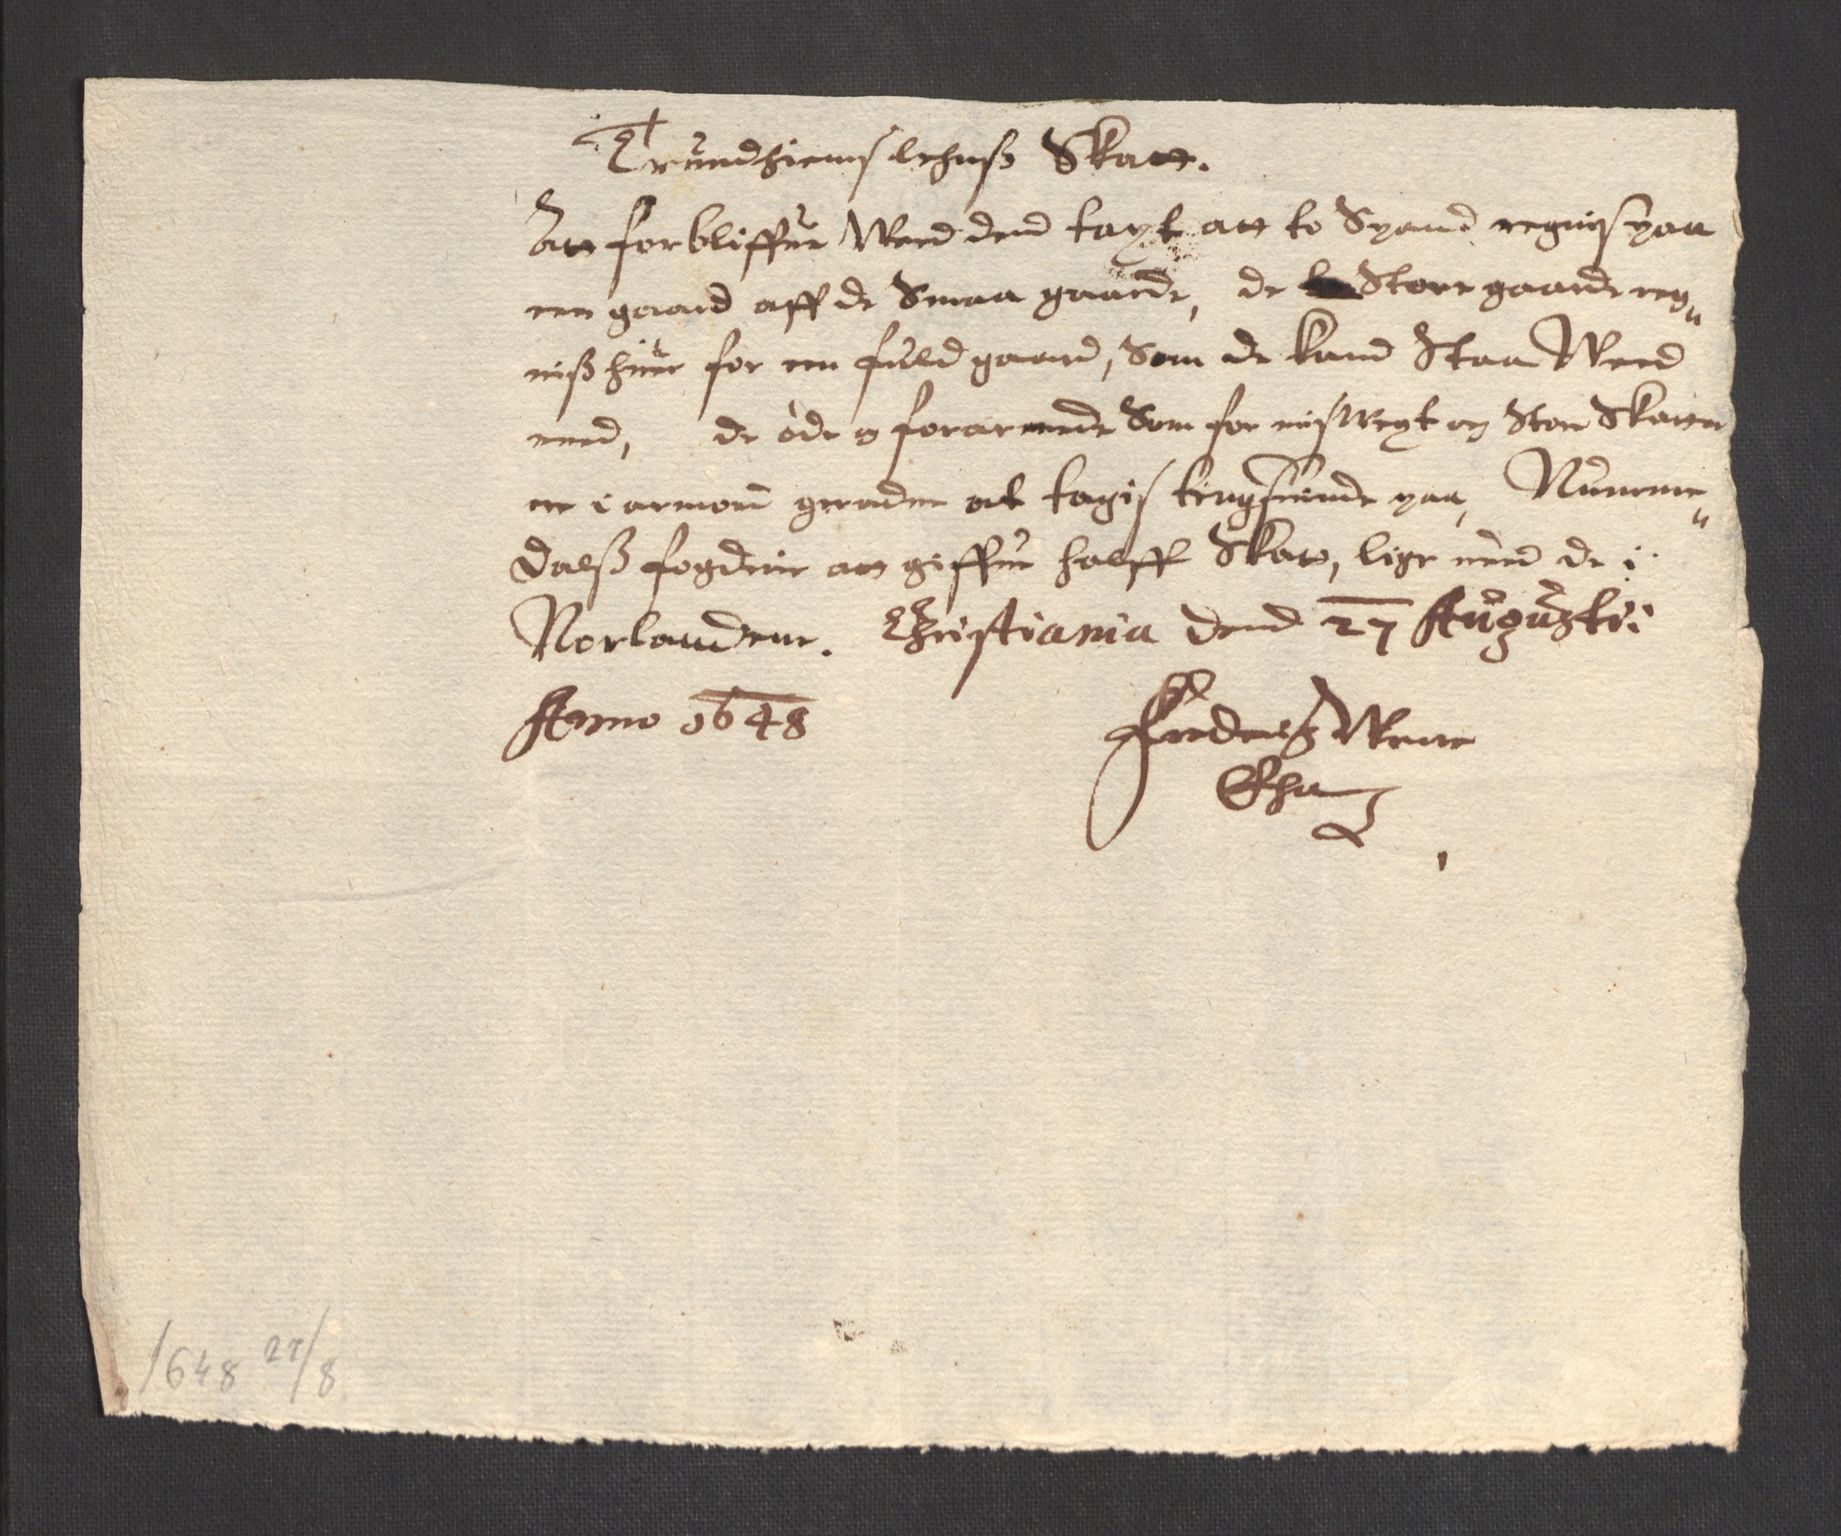 Trundhiems lehnß Skatt.
Att forbliffuer Weed dend taxt att to Spand regnis paa
een gaard aff de Smaa gaarde, de Store gaarde reg„
niß huer for en fuld gaard, Som de kand Staa Weed
med, de öde og forarmede Som for misWext og Stor Skatter
er i armod geraaden at tagis tingsuinde paa, Numme„
dalß fogderie att giffue halff Skatt, lige med de i
Norlandene. Christiania dend 27 Augusti:
Anno 1648
Frederich
1648 27/8